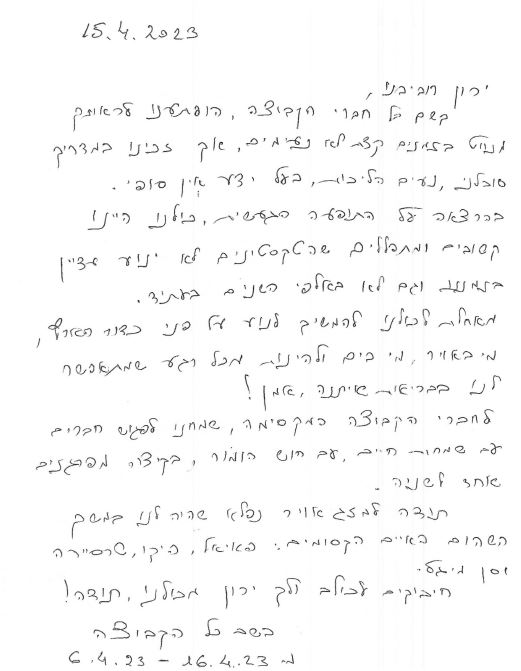 15.4.2023
ירון חביבנו,
בשם כל חברי הקבוצה, הופתענו לראותך
מנווט בזמנים קצת לא נעימים, אך זכינו במדריך
סובלני, נעים הליכות, בעל ידע אין סופי.
בהרצאה על התופעה הגעשית, כולנו היינו
קשובים ומתפללים שהטקטונים לא ינוע עדיין
בזמננו וגם לא באלפי השנים בעתיד.
מאחלת לכולנו להמשיך לנוע על פני כדור הארץ,
מי באויר, מי בים ולהינות מכל רגע שמתאפשר
לנו בבריאות איתנה, אמן!
לחברי הקבוצה המקסימה, שמחנו לפגוש חברים
עם שמחת חיים, עם חוש הומור, בקיצור מפרגנים
אחד לשניה.
תודה למזג אויר נפלא שהיה לנו במשך
השהות באיים הקסומים: פאיאל, פיקו, טרסיירה
וסן מיגל.
חיבוקים לכולם ולך ירון מכולנו, תודה!
בשם כל הקבוצה
מ 6.4.23 – 16.4.23